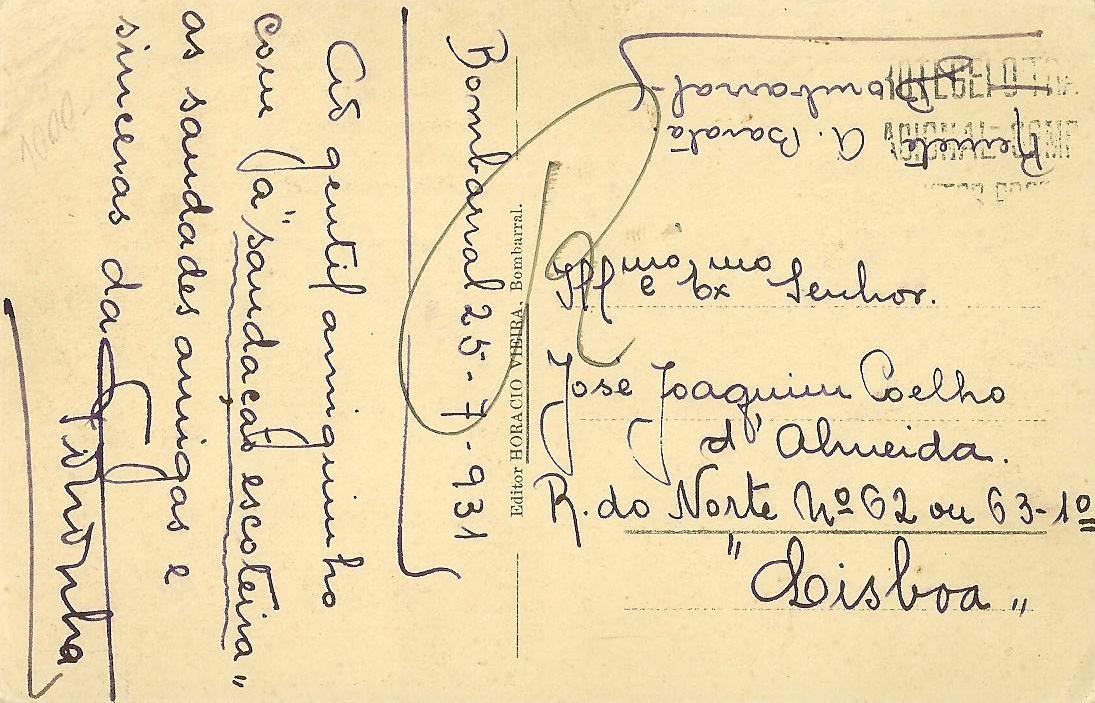 Bombarral 25-7-931
Ao gentil amiguinho
com a "saudação escoteira"
as saudades amigas e
sinceras da
Editor HORACIO VIEIRA. Bombarral.
R
Illmo e Exmo Senhor.
José Joaquim Coelho
d'Almeida.
R. do Norte Nº 62 ou 63-1º
"Lisboa"
Remete A. Barata
Bombarral
1000